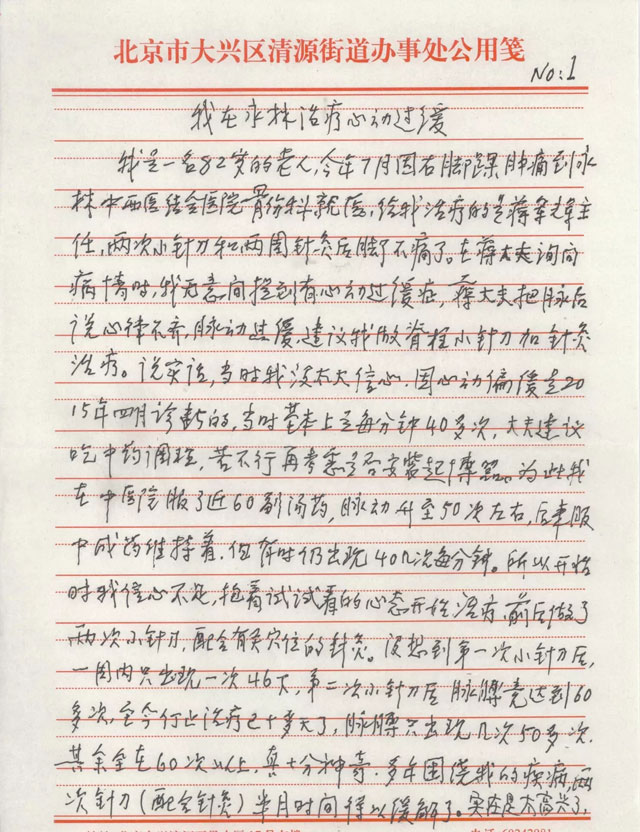 北京市大兴区清源街道办事处公用笺
No:1
我在永林治疗心动过缓
我是一名82岁的老人,今年7月因右脚踝肿痛到永
林中西医结合医院骨伤科就医,给我治疗的是蒋主
任,两次小针刀和两周针灸后脚了不痛了。在蒋大夫询问
病情时,我无意间提到有心动过缓症,蒋大夫把脉后
说心律不齐,脉动过缓,建议我做脊柱小针刀加针灸
治疗。说实话,当时我没太大信心.因心动偏缓是20
15年四月诊断的,当时基本上是每分钟40多次,大夫建议
吃中药调理,若不行再考虑是否安装起搏器。为此我
在中医院服了近60副汤药,脉动升至50次左右,后来服
中成药维持着.但有时仍出现40几次每分钟。所以开始
时我信心不足,抱着试试看的心态开始治疗.前后做了
两次小针刀,配合有关穴位的针灸。没想到第一次小针刀后,
一周内只出现一次46次,第二次小针刀后脉搏竟达到60
多次,至今停止治疗已十多天了,脉搏只出现几次50多次.
其余全在60次以上,真十分神奇.多年围绕我的疾病,两
次针刀(配合针灸)半月时间得以缓解了。实在是太高兴了,